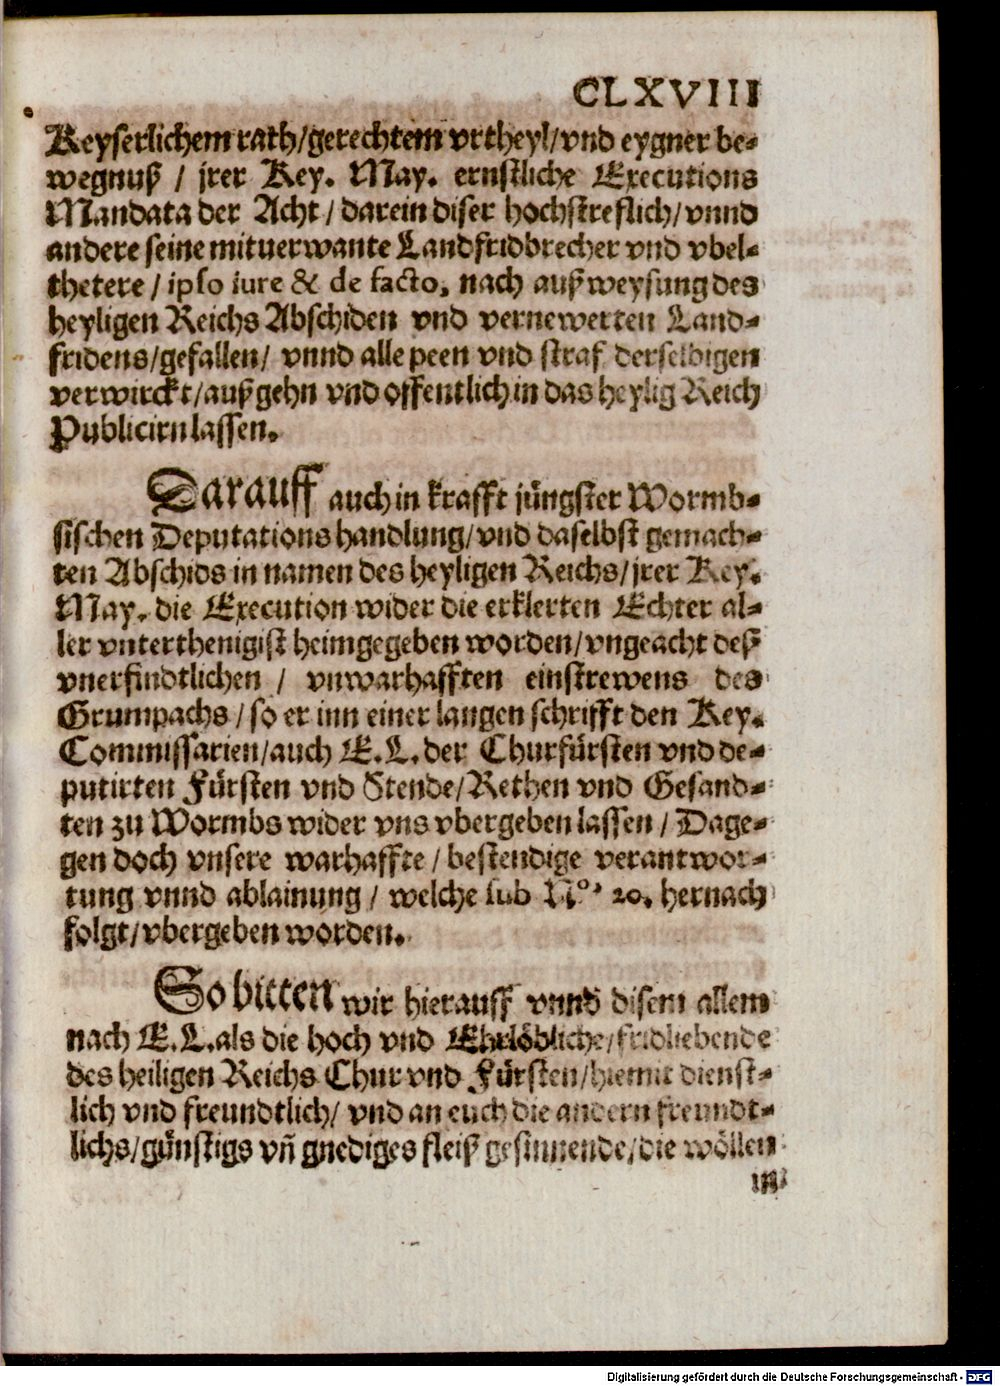 CLXVIII
Keyserlichem rath/gerechtem vrtheyl/vnd eygner be-
wegnuß / jrer Key. May. ernstliche Executions
Mandata der Acht / darein diser hochstreflich/vnnd
andere seine mituerwante Landfridbrecher vnd vbel-
thetere / ipso iure & de facto, nach außweysung des
heyligen Reichs Abschiden vnd vernewerten Land-
fridens/gefallen/ vnnd alle peen vnd straf derselbigen
verwirckt/außgehn vnd offentlich in das heylig Reich
Publicirn lassen.
Darauff auch in krafft jüngster Wormb-
sischen Deputations handlung/vnd daselbst gemach-
ten Abschids in namen des heyligen Reichs/jrer Key.
May. die Execution wider die erklerten Echter al-
ler vnterthenigist heimgegeben worden/vngeacht deß
vnerfindtlichen / vnwarhafften einstrewens des
Grumpachs / so er inn einer langen schrifft den Key.
Commissarien/auch E.L. der Churfürsten vnd de-
putirten Fürsten vnd Stende/Rethen vnd Gesand-
ten zu Wormbs wider vns vbergeben lassen / Dage-
gen doch vnsere warhaffte / bestendige verantwor-
tung vnnd ablainung / welche sub No. 20. hernach
folgt/vbergeben worden.
So bitten wir hierauff vnnd disem allem
nach E.L. als die hoch vnd Ehrlöbliche/fridliebende
des heiligen Reichs Chur vnd Fürsten/hiemit dienst-
lich vnd freundtlich/ vnd an euch die andern freundt-
lichs/günstigs vñ gnediges fleiß gesinnende/die wöllen
in
Digitalisierung gefördert durch die Deutsche Forschungsgemeinschaft - DFG